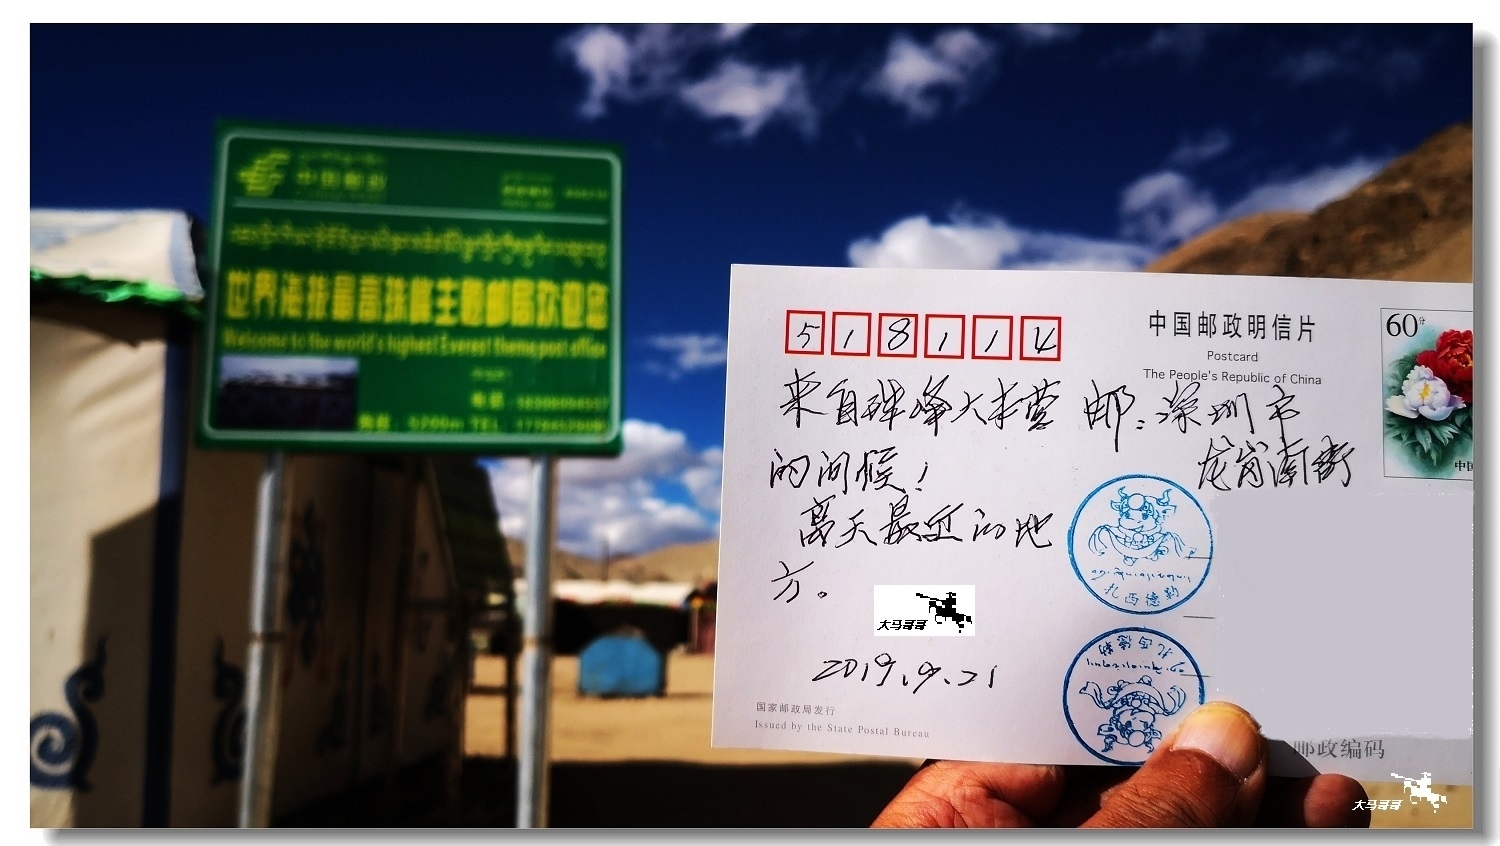 中国邮政
世界海拔最高珠峰主题邮局欢迎您
Welcome to the world's highest Everest theme post office
5200m TEL:
518114
中国邮政明信片
Postcard
The People's Republic of China
60分
来自珠峰大本营
的问候！
离天最近的地
方。
大马哥哥
2019.9.21
邮：深圳市
龙岗南街
扎西德勒
扎西德勒
国家邮政局发行
Issued by the State Postal Bureau
邮政编码
大马哥哥